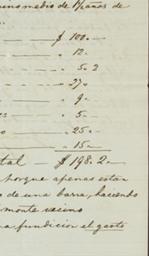 medio de 1½ años de
$ 100. —
12. —
5. 2
27. —
9. —
5. —
25. —
15. —
tal — $ 198. 2. —
porque apenas estan
de una barra, haciendo
monte vecino
a fundicion el gasto